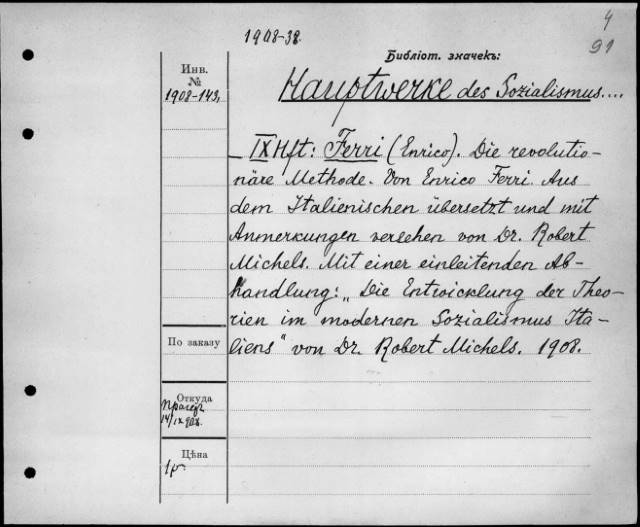 1908-38.
4
91
Библіот. значекъ:
Инв.
№
1908-143,
Hauptwerke des Sozialismus....
IX Hft: Ferri (Enrico). Die revolutio-
näre Methode. Von Enrico Ferri. Aus
dem Italienischen übersetzt und mit
Anmerkungen versehen von Dr. Robert
Michels. Mit einer einleitenden Ab-
handlung: „Die Entwicklung der Theo-
rien im modernen Sozialismus Ita-
liens" von Dr. Robert Michels. 1908.
По заказу
Откуда
14/IX 908.
Цѣна
1р